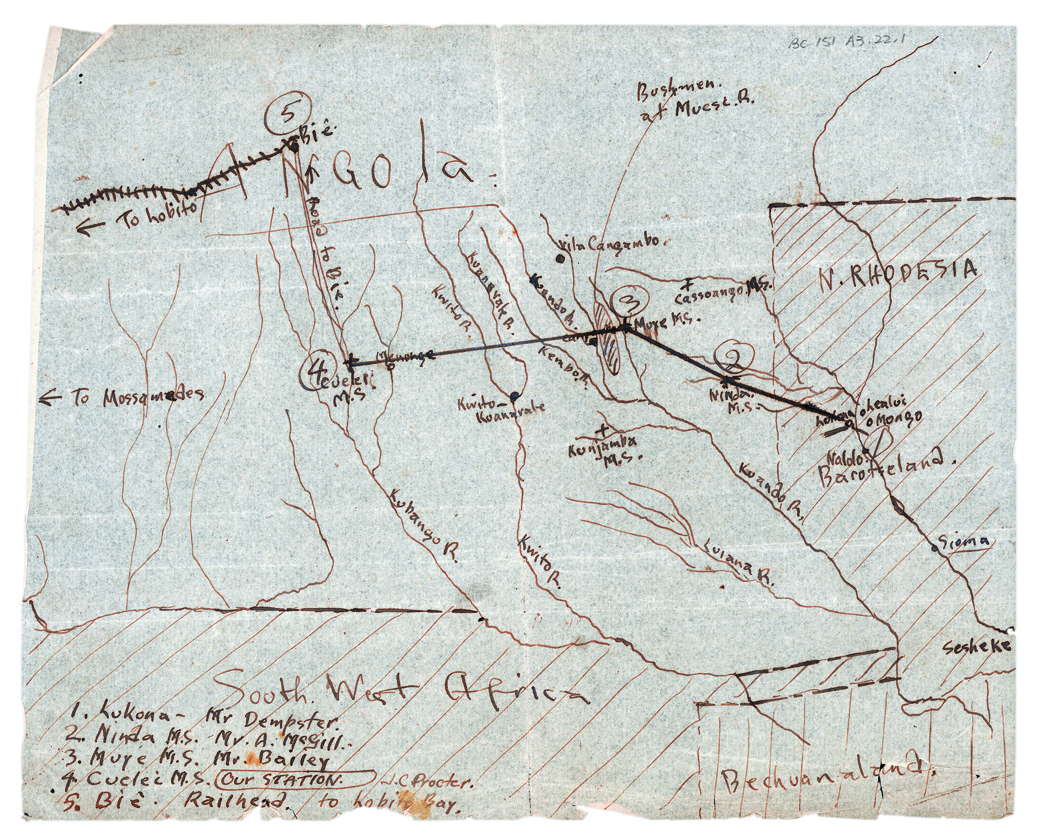 BC 151 A3.22.1
Bushmen.
at Mucsi. R.
5
Biê.
ANGOLA.
← To Lobito
Road to Bié.
Vila Cangambo.
N. RHODESIA
Cassoango. M.S.
Kuanavale R.
Kuando R.
Kwito R.
3
Muye M.S.
Kembo R.
2
4
Menonge
Cuelei
M.S.
← To Mossamedes
Ninda.
M.S.
Kwito-
Kuanavale
Lukona
Lealui
Mongo
Kunjamba
M.S.
Nalolo.
Barotseland.
Kuando R.
Kubango R.
Kwito R.
Luiana R.
Sioma
Sesheke
South. West Africa
1. Lukona - Mr Dempster.
2. Ninda M.S. Mr. A. McGill.
3. Muye M.S. Mr. Bailey
4 Cuelei M.S. (OUR STATION.) J.C Procter.
5. Biê. Railhead. to Lobito Bay.
Bechuanaland.